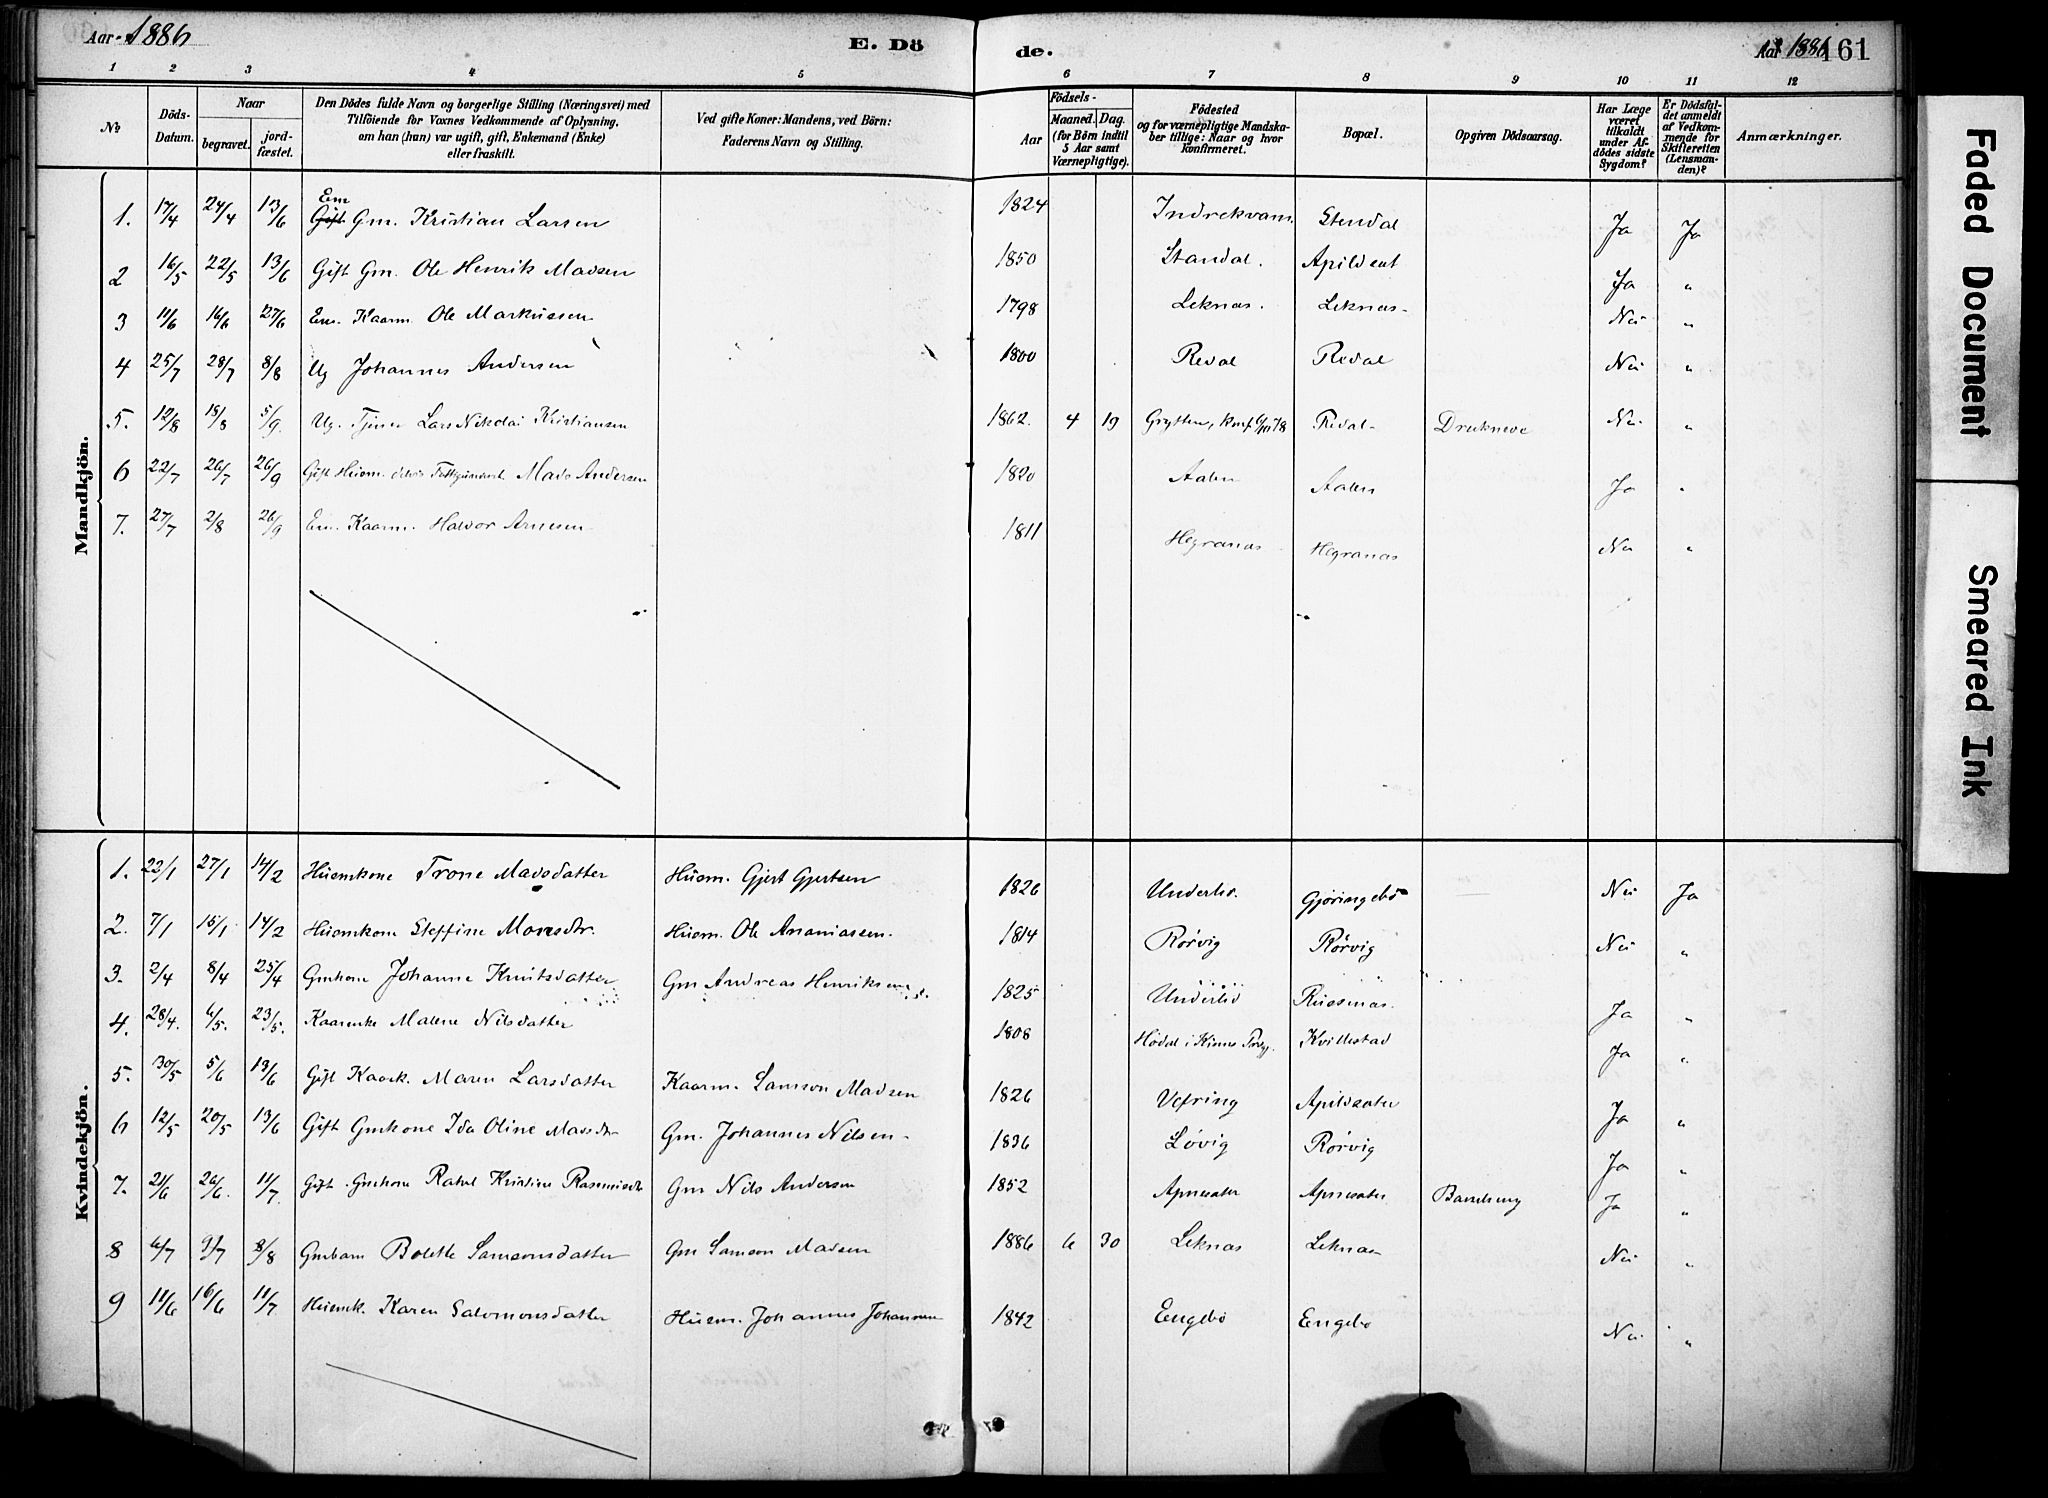 Aar 1886
E. Dö
de.
Aar 1886
161
1 2 3 4 5 6 7 8 9 10 11 12
No
Döds-Datum.
Naar
begravet.
jord-fæstet.
Den Dödes fulde Navn og borgerlige Stilling (Næringsvei) med
Tilföiende for Voxnes Vedkommende af Oplysning,
om han (hun) var ugift, gift, Enkemand (Enke)
eller fraskilt.
Ved gifte Koner: Mandens, ved Börn:
Faderens Navn og Stilling.
Födsels-
Aar
Maaned. Dag.
(for Börn indtil
5 Aar samt
Værnepligtige).
Födested
og for værnepligtige Mandska-
ber tillige: Naar og hvor
konfirmeret.
Bopæl.
Opgiven Dödsaarsag.
Har Læge
været
tilkaldt
under Af-
dödes sidste
Sygdom?
Er Dödsfal-
det anmeldt
af Vedkom-
mende for
Skifteretten
(Lensman-
den)?
Anmærkninger.
Mandkjön.
1. 17/4 24/4 13/6 Em Gift Gm. Kristian Larsen 1824 Indrekvam. Stendal Ja Ja
2 16/5 22/5 13/6 Gift Gm. Ole Henrik Madsen 1850 Standal. Apildsæt Ja "
3 11/6 16/6 27/6 Em. Kaarm. Ole Markussen 1798 Leknæs. Leknæs. Nei "
4 25/7 28/7 8/8 Ug Johannes Andersen 1800 Redal Redal Nei "
5. 12/8 15/8 5/9. Ug. Tjener Lars Nikolai Kristiansen 1862. 4 19 Grytten, konf. Redal Druknede Nei "
6 22/7 26/7 26/9 Gift Husm. Mads Andersen 1820 Aalen Aalen Ja "
7. 27/7 2/8 26/9 Em. Kaarm. Halvor Arnesen 1811 Hegranæs Hegranæs Nei "
Kvindekjön.
1. 22/1 27/1 14/2 Husmkone Trone Madsdatter Husm. Gjert Gjertsen 1826 Underlid. Gjöringebö Nei Ja
2. 7/1 15/1 14/2 Husmkone Steffine Monsdtr. Husm. Ole Ananiassen. 1814 Rörvig Rörvig Nei "
3. 2/4 8/4 25/4 Gmkone Johanne Knutsdatter Gm Andreas Henriksen 1825 Underlid Russenæs. Ja "
4. 28/4. 6/5. 23/5. Kaarenke Malene Nilsdatter 1808 Hödal i Kinns Præg. Kvillestad Ja "
5. 30/5 5/6 13/6 Gift Kaark. Maren Larsdatter Kaarm. Samson Madsen 1826 Vefring Apildsæter Ja "
6 12/5 20/5 13/6 Gift Gmkone Ida Oline Madsdtr Gm. Johannes Nilsen 1836 Lövig Rörvig Ja "
7. 21/6 26/6. 11/7. Gift Gmkone Rakel Kristine Rasmusdtr Gm Nils Andersen 1852 Apnesæter Apnesæter Barselseng Ja "
8 6/7 9/7 8/8 Gmbarn Bolette Samsonsdatter Gm Samson Madsen 1886 6 30 Leknæs Leknæs Nei "
9 11/6 16/6 11/7. Husmk. Karen Salomonsdatter Husm. Johannes Johannesen 1842 Engebö Engebö Nei "
Faded Document
Smeared Ink